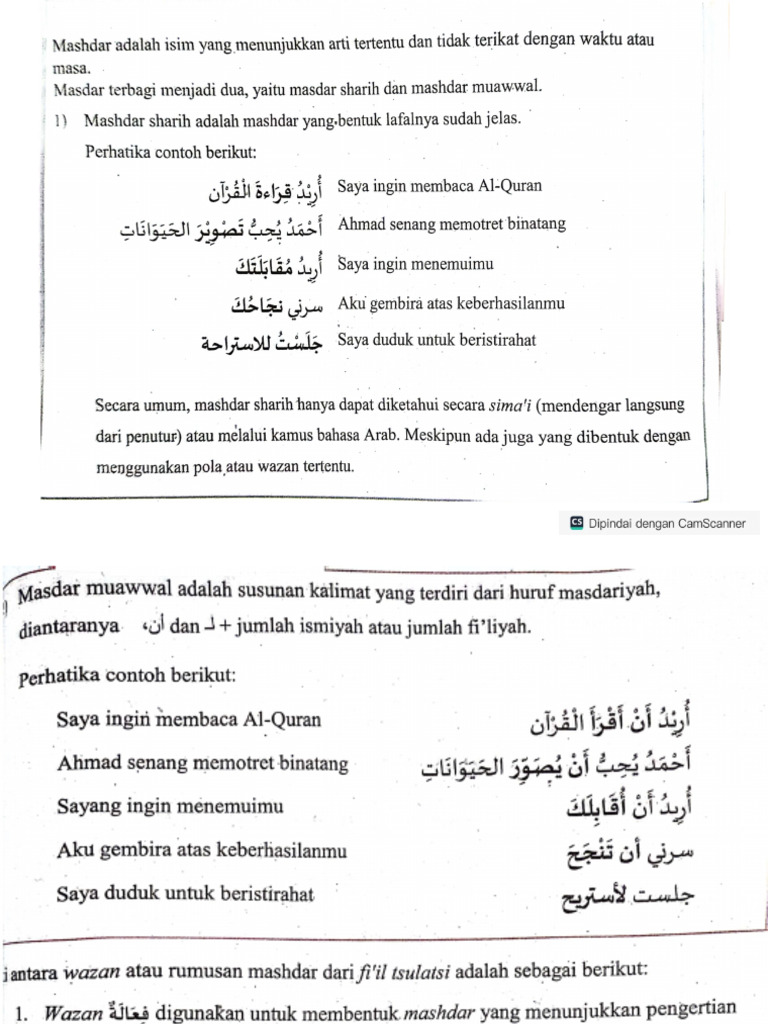 Mashdar adalah isim yang menunjukkan arti tertentu dan tidak terikat dengan waktu atau
masa.
Masdar terbagi menjadi dua, yaitu masdar sharih dan mashdar muawwal.
1) Mashdar sharih adalah mashdar yang bentuk lafalnya sudah jelas.
Perhatika contoh berikut:
أُرِيْدُ قِرَاءةَ الْقُرْآن Saya ingin membaca Al-Quran
أَحْمَدُ يُحِبُّ تَصْوِيْرَ الحَيَوَانَاتِ Ahmad senang memotret binatang
أُرِيدُ مُقَابَلَتَكَ Saya ingin menemuimu
سرني نجَاحُكَ Aku gembira atas keberhasilanmu
جَلَسْتُ للاستراحة Saya duduk untuk beristirahat
Secara umum, mashdar sharih hanya dapat diketahui secara sima'i (mendengar langsung
dari penutur) atau melalui kamus bahasa Arab. Meskipun ada juga yang dibentuk dengan
menggunakan pola atau wazan tertentu.
CS Dipindai dengan CamScanner
Masdar muawwal adalah susunan kalimat yang terdiri dari huruf masdariyah,
diantaranya أن، dan لـ + jumlah ismiyah atau jumlah fi'liyah.
Perhatika contoh berikut:
Saya ingin membaca Al-Quran أُرِيْدُ أَنْ أَقْرَأَ الْقُرْآن
Ahmad senang memotret binatang أَحْمَدُ يُحِبُّ أَنْ يُصَوِّرَ الحَيَوَانَاتِ
Sayang ingin menemuimu أُرِيدُ أَنْ أُقَابِلَكَ
Aku gembira atas keberhasilanmu سرني أن تَنْجَحَ
Saya duduk untuk beristirahat جلست لأستريح
antara wazan atau rumusan mashdar dari fi'il tsulatsi adalah sebagai berikut:
1. Wazan فِعَالَةٌ digunakan untuk membentuk mashdar yang menunjukkan pengertian